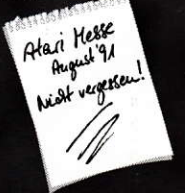 Atari Messe
August '91
Nicht vergessen!